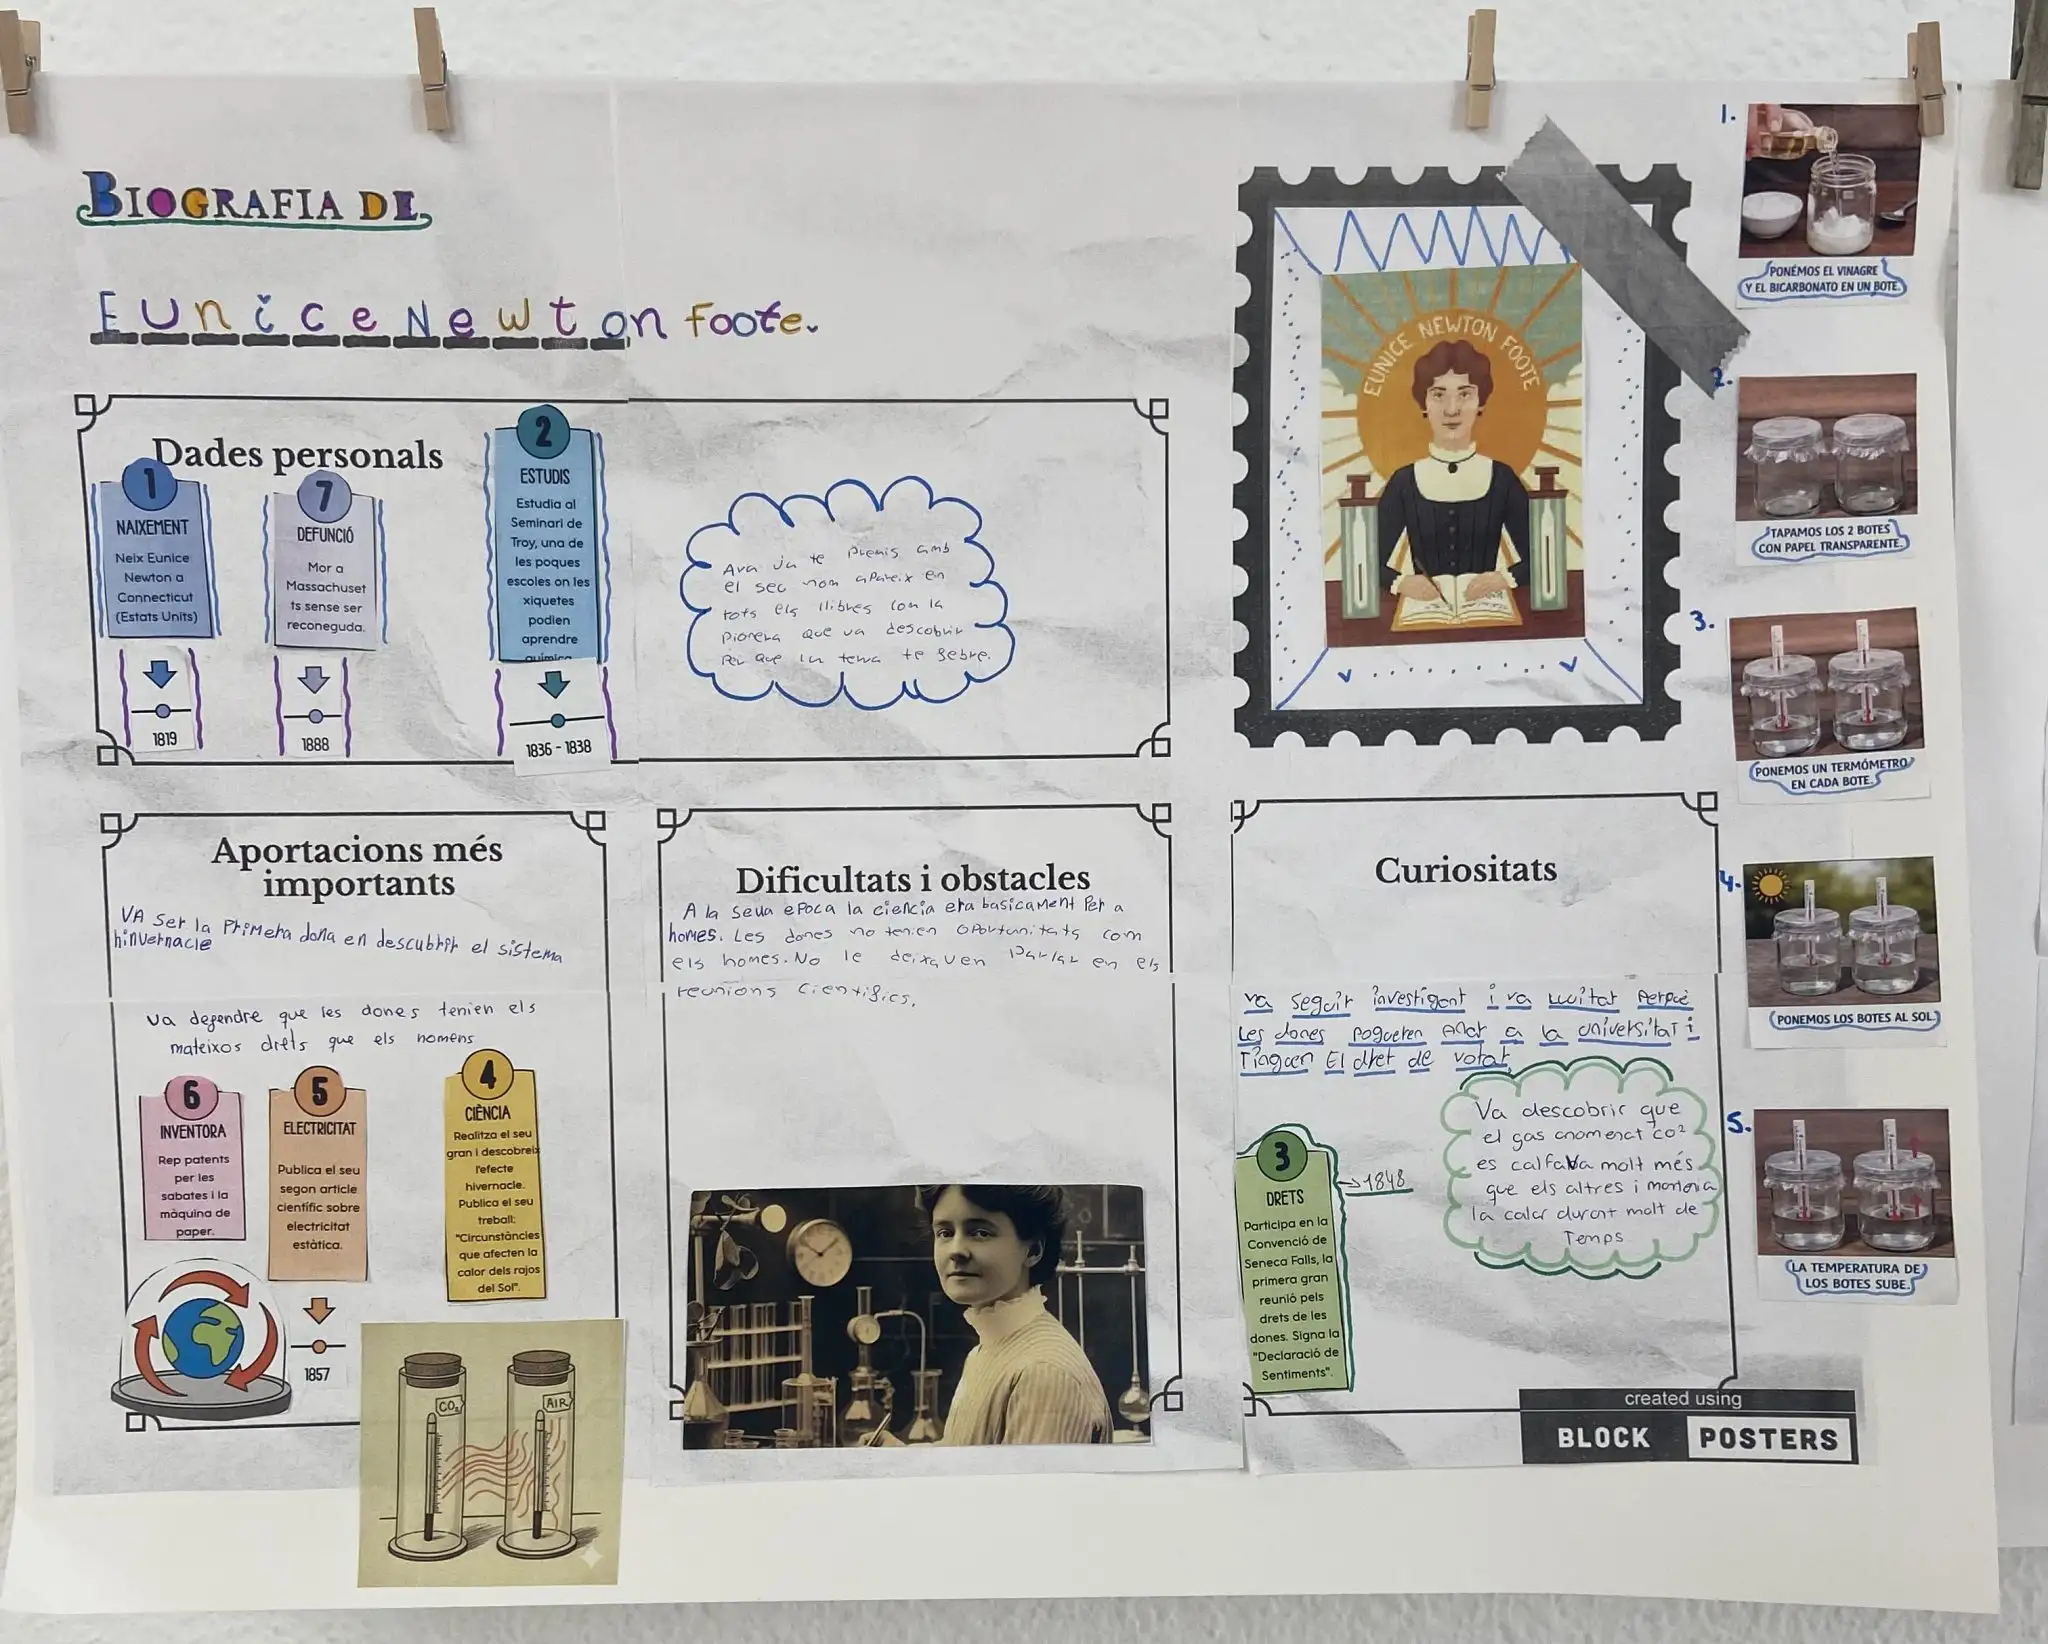 BIOGRAFIA DE
Eunice Newton Foote.
Dades personals
1
NAIXEMENT
Neix Eunice
Newton a
Connecticut
(Estats Units)
1819
7
DEFUNCIÓ
Mor a
Massachuset
ts sense ser
reconeguda.
1888
2
ESTUDIS
Estudia al
Seminari de
Troy, una de
les poques
escoles on les
xiquetes
podien
aprendre
química
1836 - 1838
Ara ja te premis amb
el seu nom apareix en
tots els llibres com la
pionera que va descobrir
per que la terra te febre.
EUNICE NEWTON FOOTE
Aportacions més
importants
VA ser la Primera dona en descubrir el sistema
hinvernacle
va defendre que les dones tenien els
mateixos drets que els homens
6
INVENTORA
Rep patents
per les
sabates i la
màquina de
paper.
5
ELECTRICITAT
Publica el seu
segon article
científic sobre
electricitat
estàtica.
1857
4
CIÈNCIA
Realitza el seu
gran i descobreix
l'efecte
hivernacle.
Publica el seu
treball:
"Circunstàncies
que afecten la
calor dels rajos
del Sol".
CO₂
AIR
Dificultats i obstacles
A la seua epoca la ciencia era basicament Per a
homes. Les dones no tenien oportunitats com
els homes. No le deixaven Parlar en els
reunions cientifics.
Curiositats
va seguir investigant i va lluitat perquè
Les dones pogueren Anar a la universitat i
Tingueren El dret de votar.
3
DRETS
Participa en la
Convenció de
Seneca Falls, la
primera gran
reunió pels
drets de les
dones. Signa la
"Declaració de
Sentiments".
→1848
Va descobrir que
el gas anomenat co²
es calfava molt més
que els altres i mantenia
la calor durant molt de
Temps
created using
BLOCK POSTERS
1.
PONÉMOS EL VINAGRE
Y EL BICARBONATO EN UN BOTE.
2.
TAPAMOS LOS 2 BOTES
CON PAPEL TRANSPARENTE.
3.
PONEMOS UN TERMÓMETRO
EN CADA BOTE.
4.
PONEMOS LOS BOTES AL SOL.
5.
LA TEMPERATURA DE
LOS BOTES SUBE.